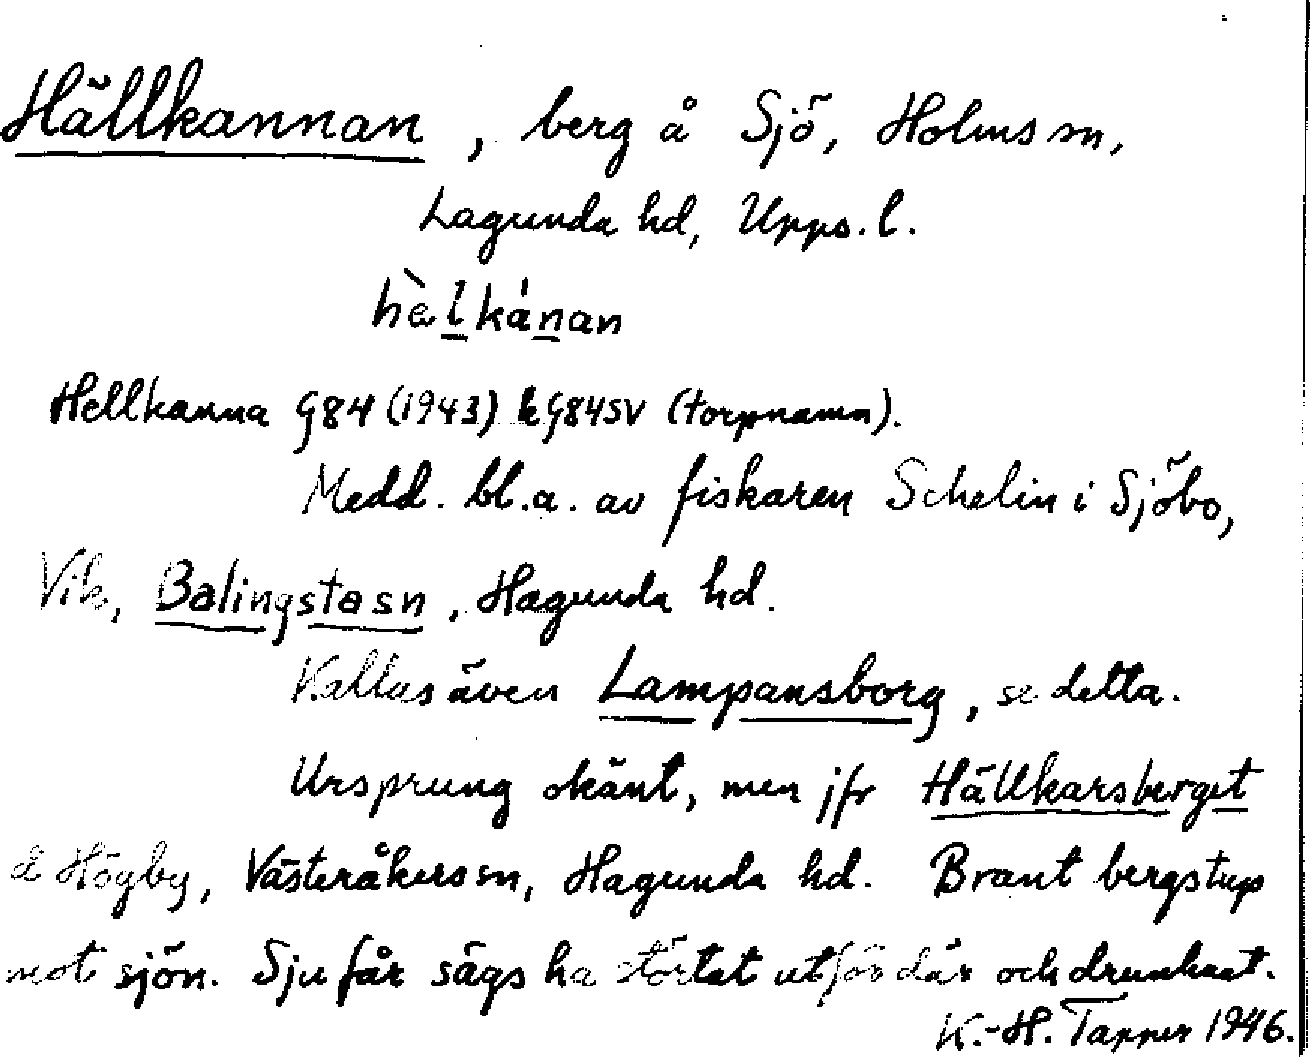 Hällkannan, berg å Sjö, Holms sn,
Lagunda hd, Upps. l.
hèlkánan
Hellkanna G84 (1943) k G84SV (torpnamn).
Medd. bl.a. av fiskaren Schelin i Sjöbo,
Vik, Balingsta sn, Hagunda hd.
Kallas även Lampansborg, se detta.
Ursprung okänt, men jfr Hällkarsberget
å Högby, Västeråkers sn, Hagunda hd. Brant bergstup
mot sjön. Sju får sägs ha störtat utför där och drunknat.
K.-H. Tapper 1946.